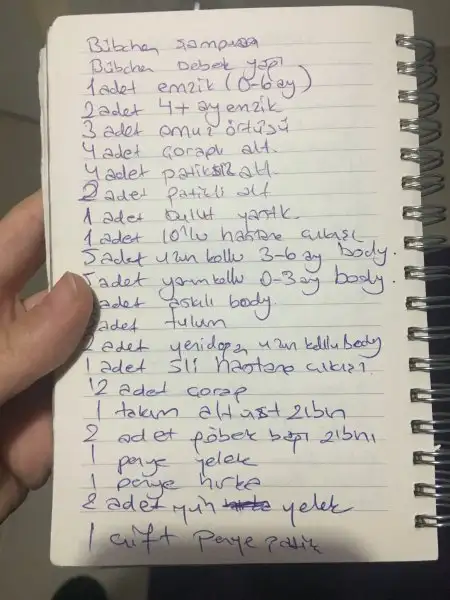 Bübchen şampuan
Bübchen Bebek yağı
1 adet emzik (0-6 ay)
2 adet 4+ ay emzik
3 adet omuz örtüsü
4 adet çoraplı alt.
4 adet patiksiz alt.
2 adet patikli alt
1 adet bulut yastık.
1 adet 10'lu hastane çıkışı
5 adet uzun kollu 3-6 ay body.
5 adet yarım kollu 0-3 ay body.
adet askılı body.
adet tulum
2 adet yenidoğan uzun kollu body
1 adet 5li hastane çıkışı.
12 adet çorap
1 takım alt üst zıbın
2 adet göbek bağı zıbını
1 penye yelek
1 penye hırka
2 adet yün yelek
1 çift penye patik